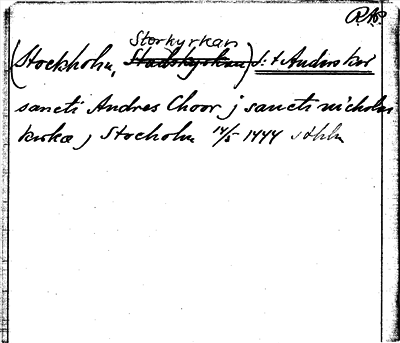 RAP
Storkyrkan
(Stockholm, Stadskyrkan) S:t Andires kor
sancti Andres Choor j sancti nicholai
kirka j Stocholm 14/5 1444 sthlm